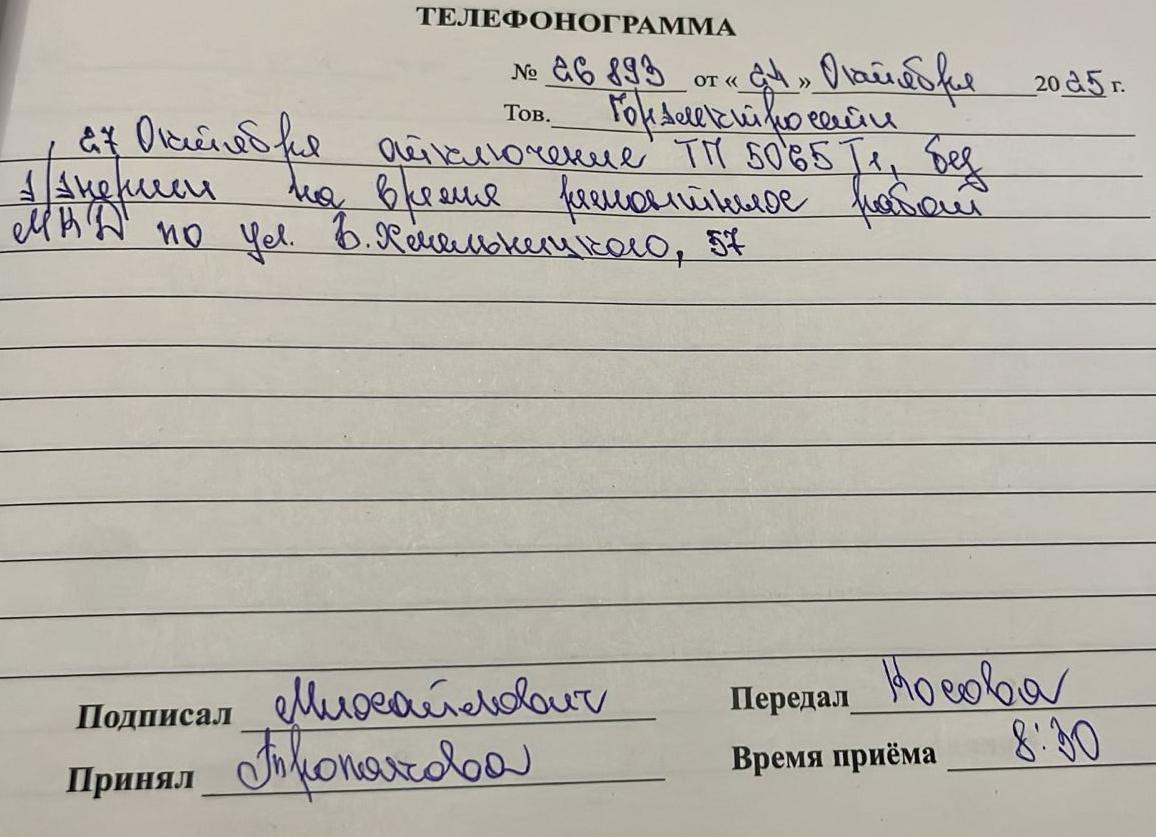 ТЕЛЕФОНОГРАММА
№ 26 893 от « 24 » Октября 2025 г.
Тов. Горэлектросети
27 Октября отключение ТП 5065 Т1, без
э/энергии на время ремонтные работ
МКД по ул. Б.Хмельницкого, 57
Подписал Михайлович Передал Косова
Принял Время приёма 8:30